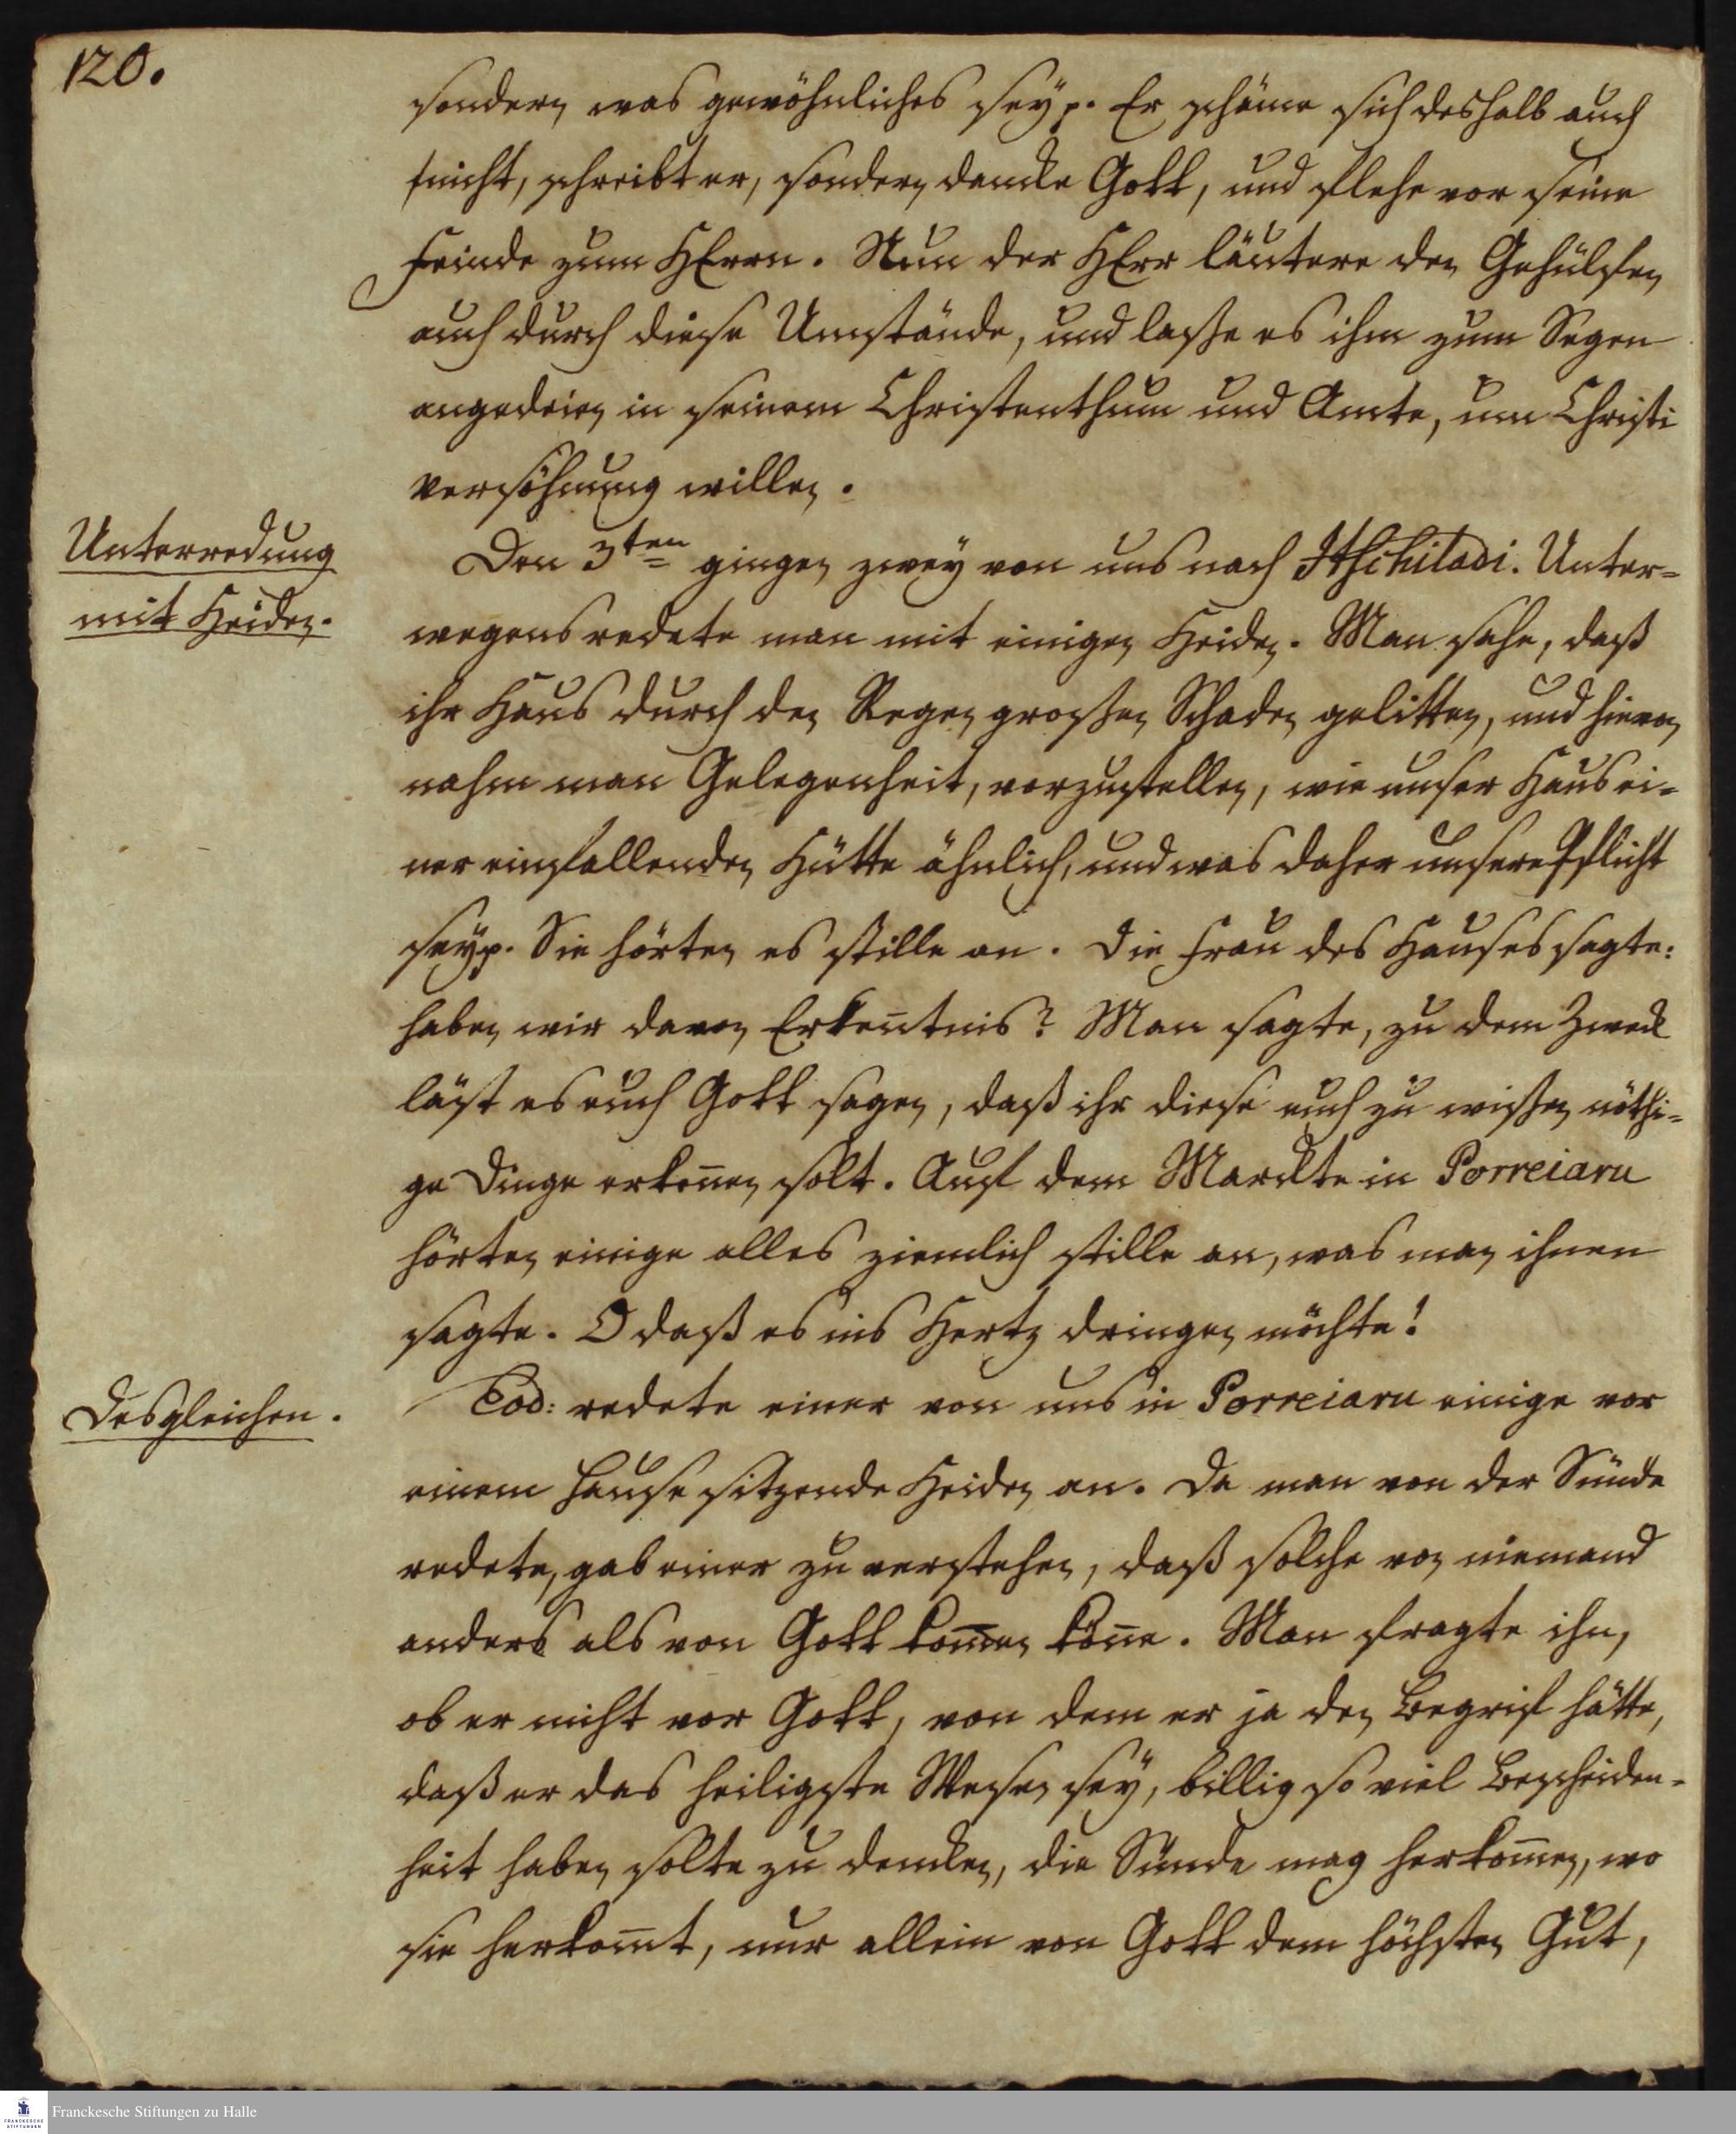 120.
sondern was gewöhnliches sey p. Er schäme sich deshalb auch
nicht, schreibt er, sondern dancke Gott, und flehe vor seine
Feinde zum HErrn. Nun der HErr läutere den Gehülfen
auch durch diese Umstände, und laße es ihm zum Segen
angedeien in seinem Christenthum und Amte, um Christi
Versöhnung willen.
Unterredung
mit Heiden.
Den 3ten gingen zwey von uns nach Itschiladi. Unter=
wegens redete man mit einigen Heiden. Man sahe, daß
ihr Haus durch den Regen großen Schaden gelitten, und hievon
nahm man Gelegenheit, vorzustellen, wie unser Haus ei=
ner einfallenden Hütte ähnlich, und was daher unsere Pflicht
sey p. Sie hörten es stille an. Die Frau des Hauses sagte:
haben wir davon Erkentnis? Man sagte, zu dem Zweck
läst es euch Gott sagen, daß ihr diese euch zu wißen nöthi=
ge Dinge erkennen solt. Auf dem Marckte in Porreiaru
hörten einige alles ziemlich stille an, was man ihnen
sagte. O daß es ins Hertz dringen möchte!
Desgleichen.
Eod: redete einer von uns in Porreiaru einige vor
einem Hause sitzende Heiden an. Da man von der Sünde
redete, gab einer zu verstehen, daß solche von niemand
anders als von Gott kom̅en kön̅e. Man fragte ihn,
ob er nicht vor Gott, von dem er ja den Begrif hätte,
daß er das heiligste Wesen sey, billig so viel Bescheiden=
heit haben solte zu dencken, die Sünde mag herkom̅en, wo
sie herkom̅t, nur allein von Gott dem höchsten Gut,
Franckesche Stiftungen zu Halle
FRANCKESCHE
STIFTUNGEN